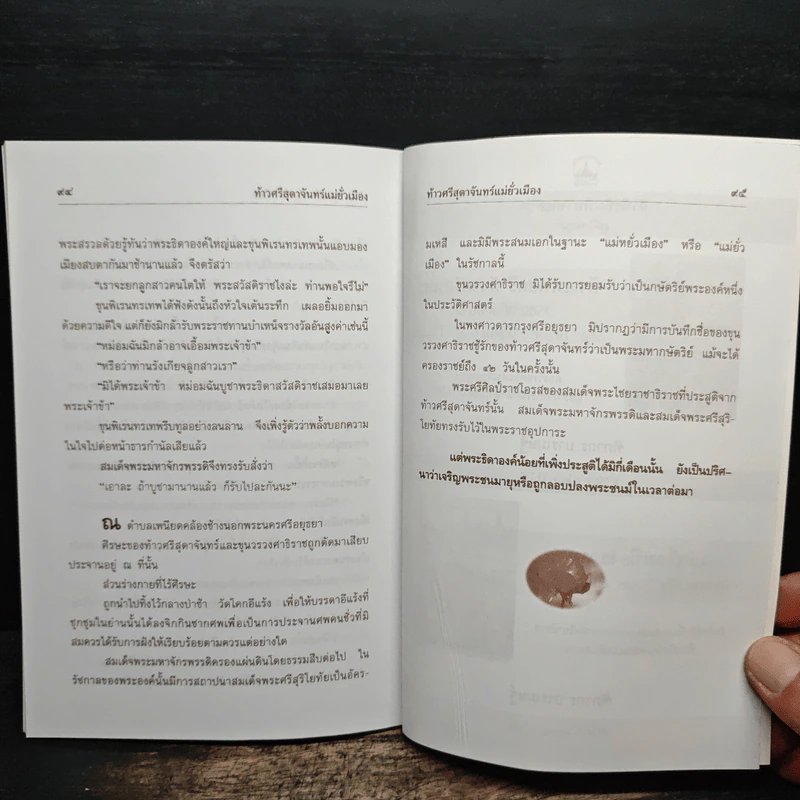 ๙๔
ท้าวศรีสุดาจันทร์แม่ยั่วเมือง
พระสรวลด้วยรู้ทันว่าพระธิดาองค์ใหญ่และขุนพิเรนทรเทพนั้นแอบมอง
เมียงสบตากันมาช้านานแล้ว จึงตรัสว่า
“เราจะยกลูกสาวคนโตให้ พระสวัสดิราชไงล่ะ ท่านพอใจรึไม่”
ขุนพิเรนทรเทพได้ฟังดังนั้นถึงหัวใจเต้นระทึก เผลอยิ้มออกมา
ด้วยความดีใจ แต่ก็ยังมิกล้ารับพระราชทานบำเหน็จรางวัลอันสูงค่าเช่นนี้
“หม่อมฉันมิกล้าอาจเอื้อมพระเจ้าข้า”
“หรือว่าท่านรังเกียจลูกสาวเรา”
“มิได้พระเจ้าข้า หม่อมฉันบูชาพระธิดาสวัสดิราชเสมอมาเลย
พระเจ้าข้า”
ขุนพิเรนทรเทพรีบทูลอย่างลนลาน จึงเพิ่งรู้ตัวว่าพลั้งบอกความ
ในใจไปต่อหน้าธารกำนัลเสียแล้ว
สมเด็จพระมหาจักรพรรดิจึงทรงรับสั่งว่า
“เอาละ ถ้าบูชามานานแล้ว ก็รับไปละกันนะ”
ณ ตำบลเพนียดคล้องช้างนอกพระนครศรีอยุธยา
ศีรษะของท้าวศรีสุดาจันทร์และขุนวรวงศาธิราชถูกตัดมาเสียบ
ประจานอยู่ ณ ที่นั้น
ส่วนร่างกายที่ไร้ศีรษะ
ถูกนำไปทิ้งไว้กลางป่าช้า วัดโคกอีแร้ง เพื่อให้บรรดาอีแร้งที่
ชุกชุมในย่านนั้นได้ลงจิกกินซากศพเพื่อเป็นการประจานศพคนชั่วที่มิ
สมควรได้รับการฝังให้เรียบร้อยตามควรแต่อย่างใด
สมเด็จพระมหาจักรพรรดิครองแผ่นดินโดยธรรมสืบต่อไป ใน
รัชกาลของพระองค์นั้นมีการสถาปนาสมเด็จพระศรีสุริโยทัยเป็นอัคร-
ท้าวศรีสุดาจันทร์แม่ยั่วเมือง
๙๕
มเหสี และมิมีพระสนมเอกในฐานะ “แม่หยั่วเมือง” หรือ “แม่ยั่ว
เมือง” ในรัชกาลนี้
ขุนวรวงศาธิราช มิได้รับการยอมรับว่าเป็นกษัตริย์พระองค์หนึ่ง
ในประวัติศาสตร์
ในพงศาวดารกรุงศรีอยุธยา มิปรากฏว่ามีการบันทึกชื่อของขุน
วรวงศาธิราชชู้รักของท้าวศรีสุดาจันทร์ว่าเป็นพระมหากษัตริย์ แม้จะได้
ครองราชย์ถึง ๔๒ วันในครั้งนั้น
พระศรีศิลป์ราชโอรสของสมเด็จพระไชยราชาธิราชที่ประสูติจาก
ท้าวศรีสุดาจันทร์นั้น สมเด็จพระมหาจักรพรรดิและสมเด็จพระศรีสุริ-
โยทัยทรงรับไว้ในพระราชอุปการะ
แต่พระธิดาองค์น้อยที่เพิ่งประสูติได้มิกี่เดือนนั้น ยังเป็นปริศ-
นาว่าเจริญพระชนมายุหรือถูกลอบปลงพระชนม์ในเวลาต่อมา